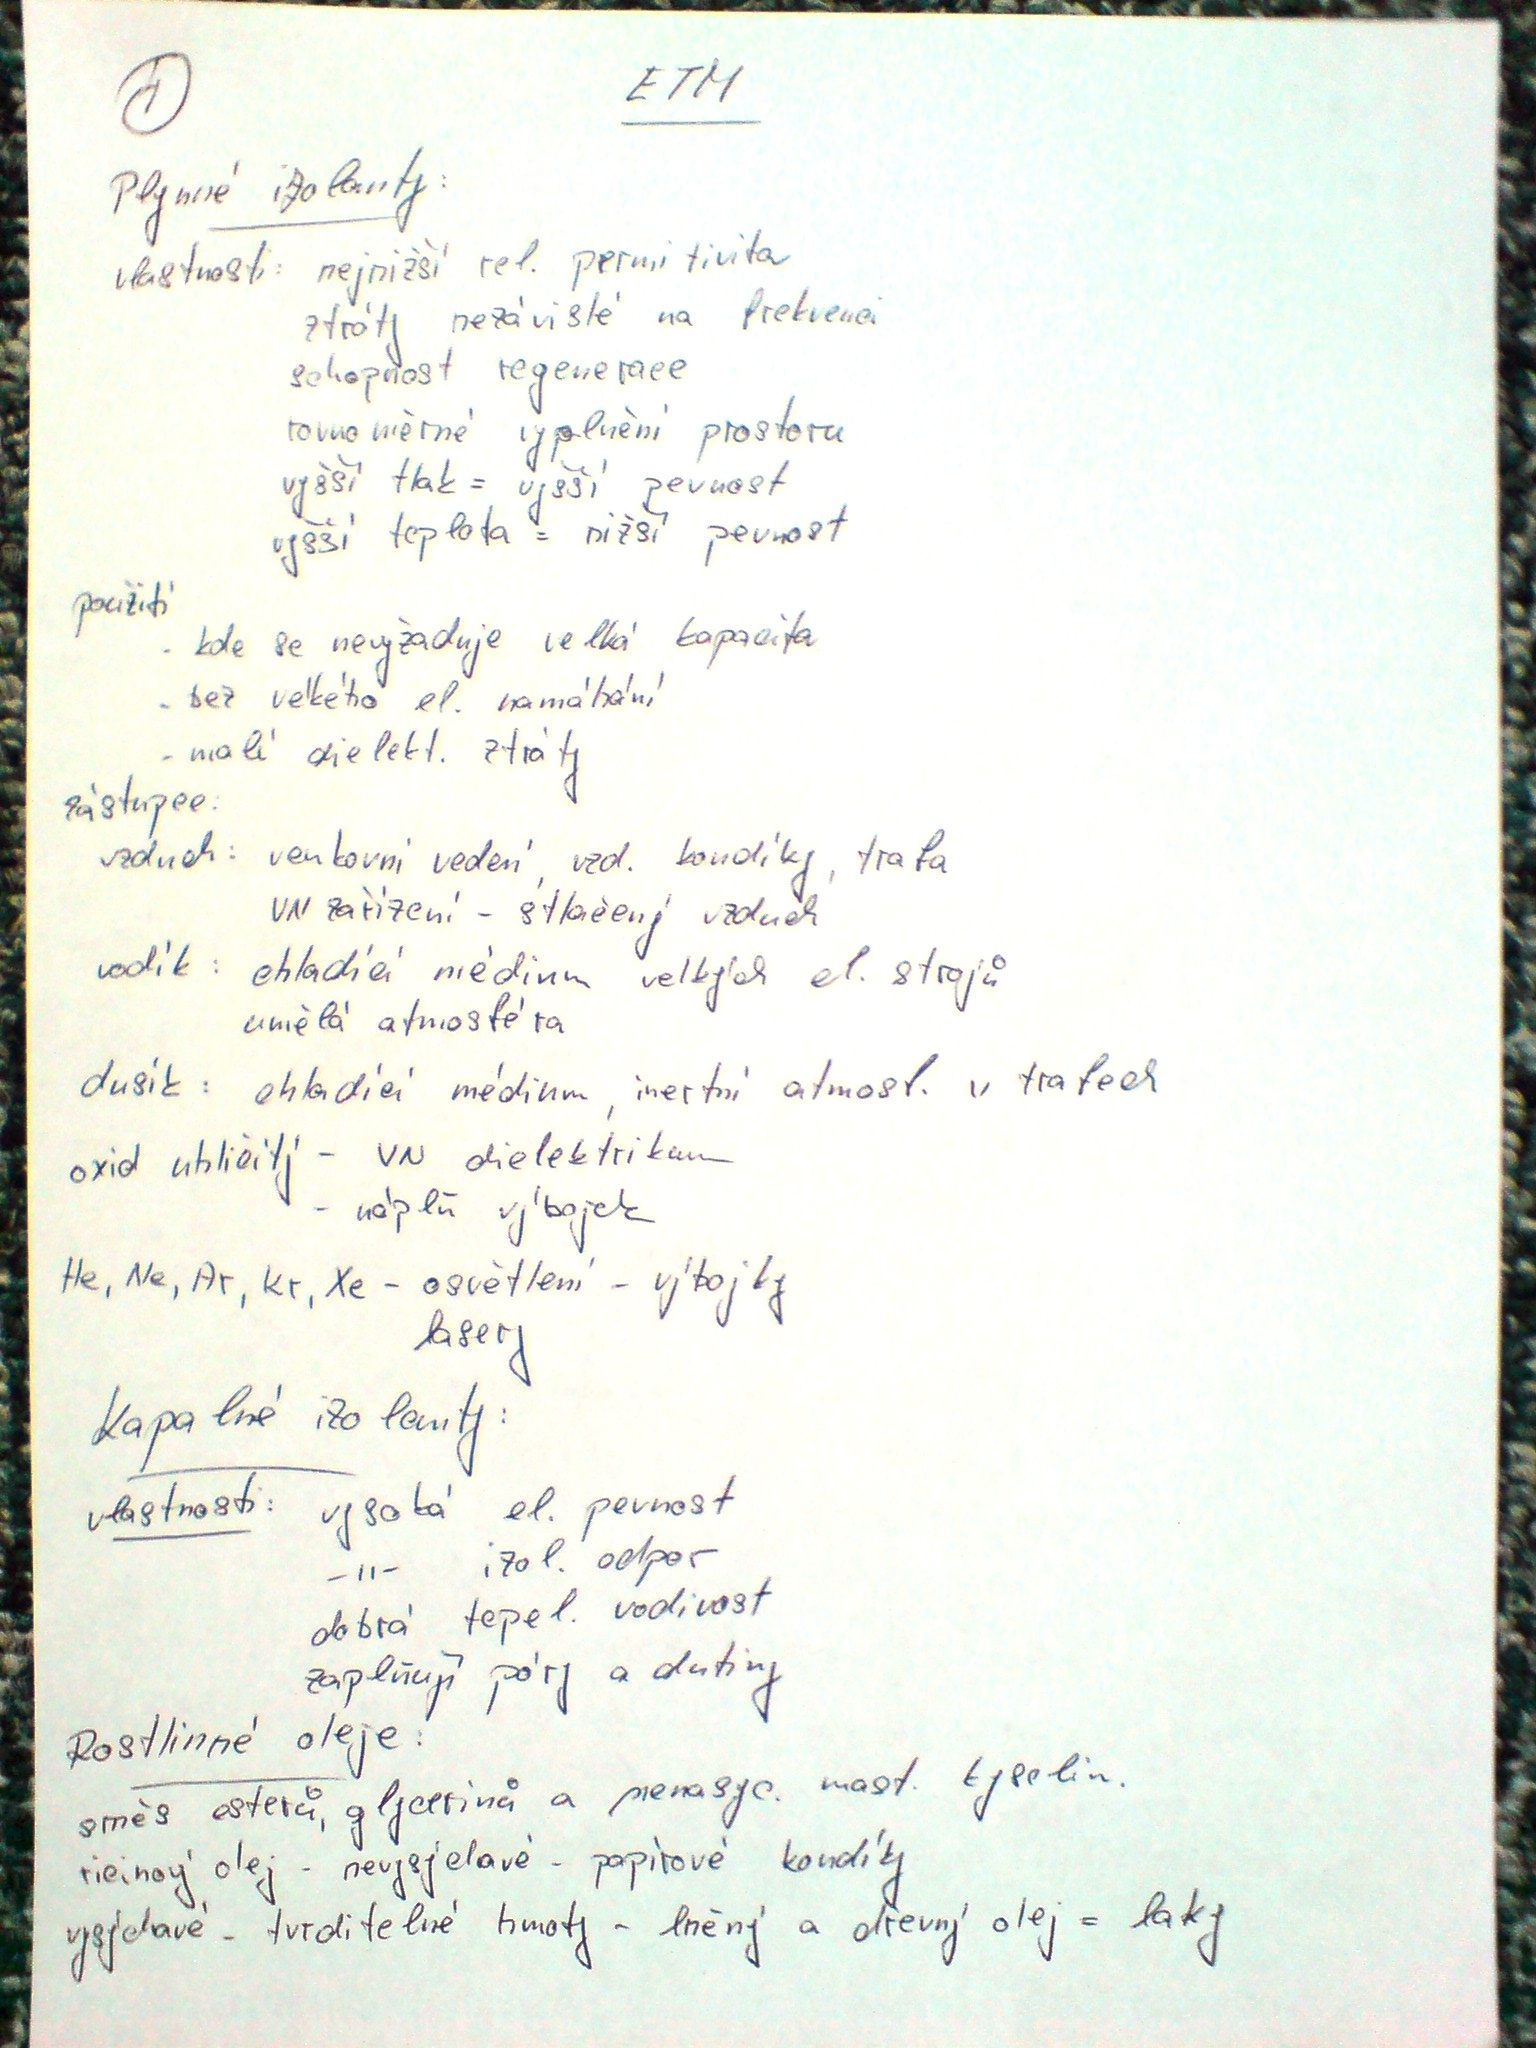 1 ETM
Plynné izolanty:
vlastnosti: nejnižší rel. permitivita
ztráty nezávislé na frekvenci
schopnost regenerace
rovnoměrné vyplnění prostoru
vyšší tlak = vyšší pevnost
vyšší teplota = nižší pevnost
použití
- kde se nevyžaduje velká kapacita
- bez velkého el. namáhání
- malé dielekt. ztráty
zástupce:
vzduch: venkovní vedení, vzd. kondíky, trafa
VN zařízení - stlačený vzduch
vodík: chladící médium velkých el. strojů
umělá atmosféra
dusík: chladící médium, inertní atmosf. v trafech
oxid uhličitý - VN dielektrikum
- náplň výbojek
He, Ne, Ar, Kr, Xe - osvětlení - výbojky
lasery
Kapalné izolanty:
vlastnosti: vysoká el. pevnost
-"- izol. odpor
dobrá tepel. vodivost
zaplňují póry a dutiny
Rostlinné oleje:
směs esterů, glycerinů a nenasyc. mast. kyselin.
ricinový olej - nevysýchavé - papírové kondíky
vysýchavé - tvrditelné hmoty - lněný a dřevný olej = laky